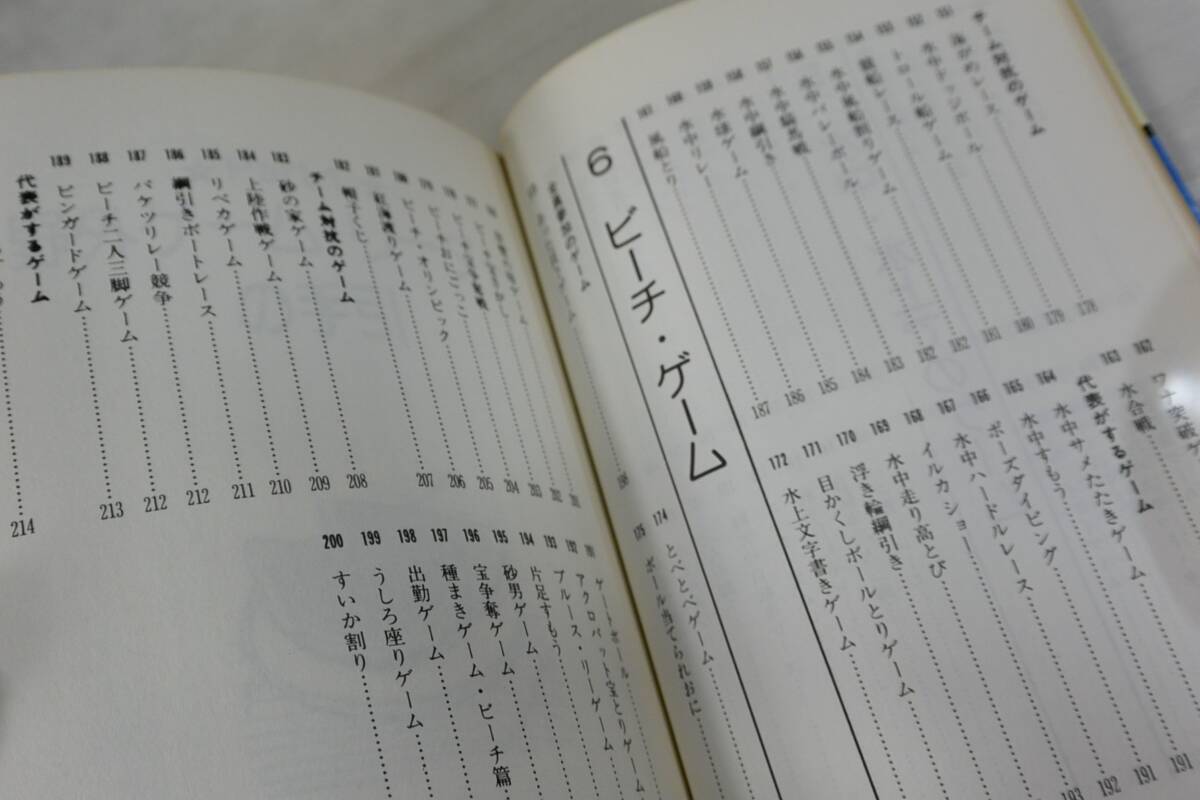 チーム対抗のゲーム
151 海がめレース 178
152 水中ドッジボール 179
153 トロール船ゲーム 180
154 競船レース 181
155 水中風船割りゲーム 182
156 水中バレーボール 182
157 水中騎馬戦 183
158 水中綱引き 184
159 水球ゲーム 185
160 水中リレー 186
161 風船とり 187
162 水合戦 191
代表がするゲーム
163 水中サメたたきゲーム 191
164 水中すもう 192
165 ポーズダイビング 193
166 水中ハードルレース
167 イルカショー
168 水中走り高とび
169 浮き輪綱引き
170 目かくしボールとりゲーム
171 水上文字書きゲーム
172
6 ビーチ・ゲーム
全員参加のゲーム
174 とべとべゲーム
175 ボール当てられおに
201
202
203
204
ビーチおにごっこ 205
ビーチ・オリンピック 206
180 紅海渡りゲーム 207
181 帽子くじ 208
チーム対抗のゲーム
182 砂の家ゲーム 209
183 上陸作戦ゲーム 210
184 リベカゲーム 211
185 綱引きボートレース 212
186 バケツリレー競争 212
187 ビーチ二人三脚ゲーム 213
188 ピンガードゲーム 214
189
代表がするゲーム
191 ゲートボール
192 アクロバット宝とりゲーム
193 ブルース・リーゲーム
194 片足すもう
195 砂男ゲーム
196 宝争奪ゲーム
197 種まきゲーム・ビーチ篇
198 出勤ゲーム
199 うしろ座りゲーム
200 すいか割り